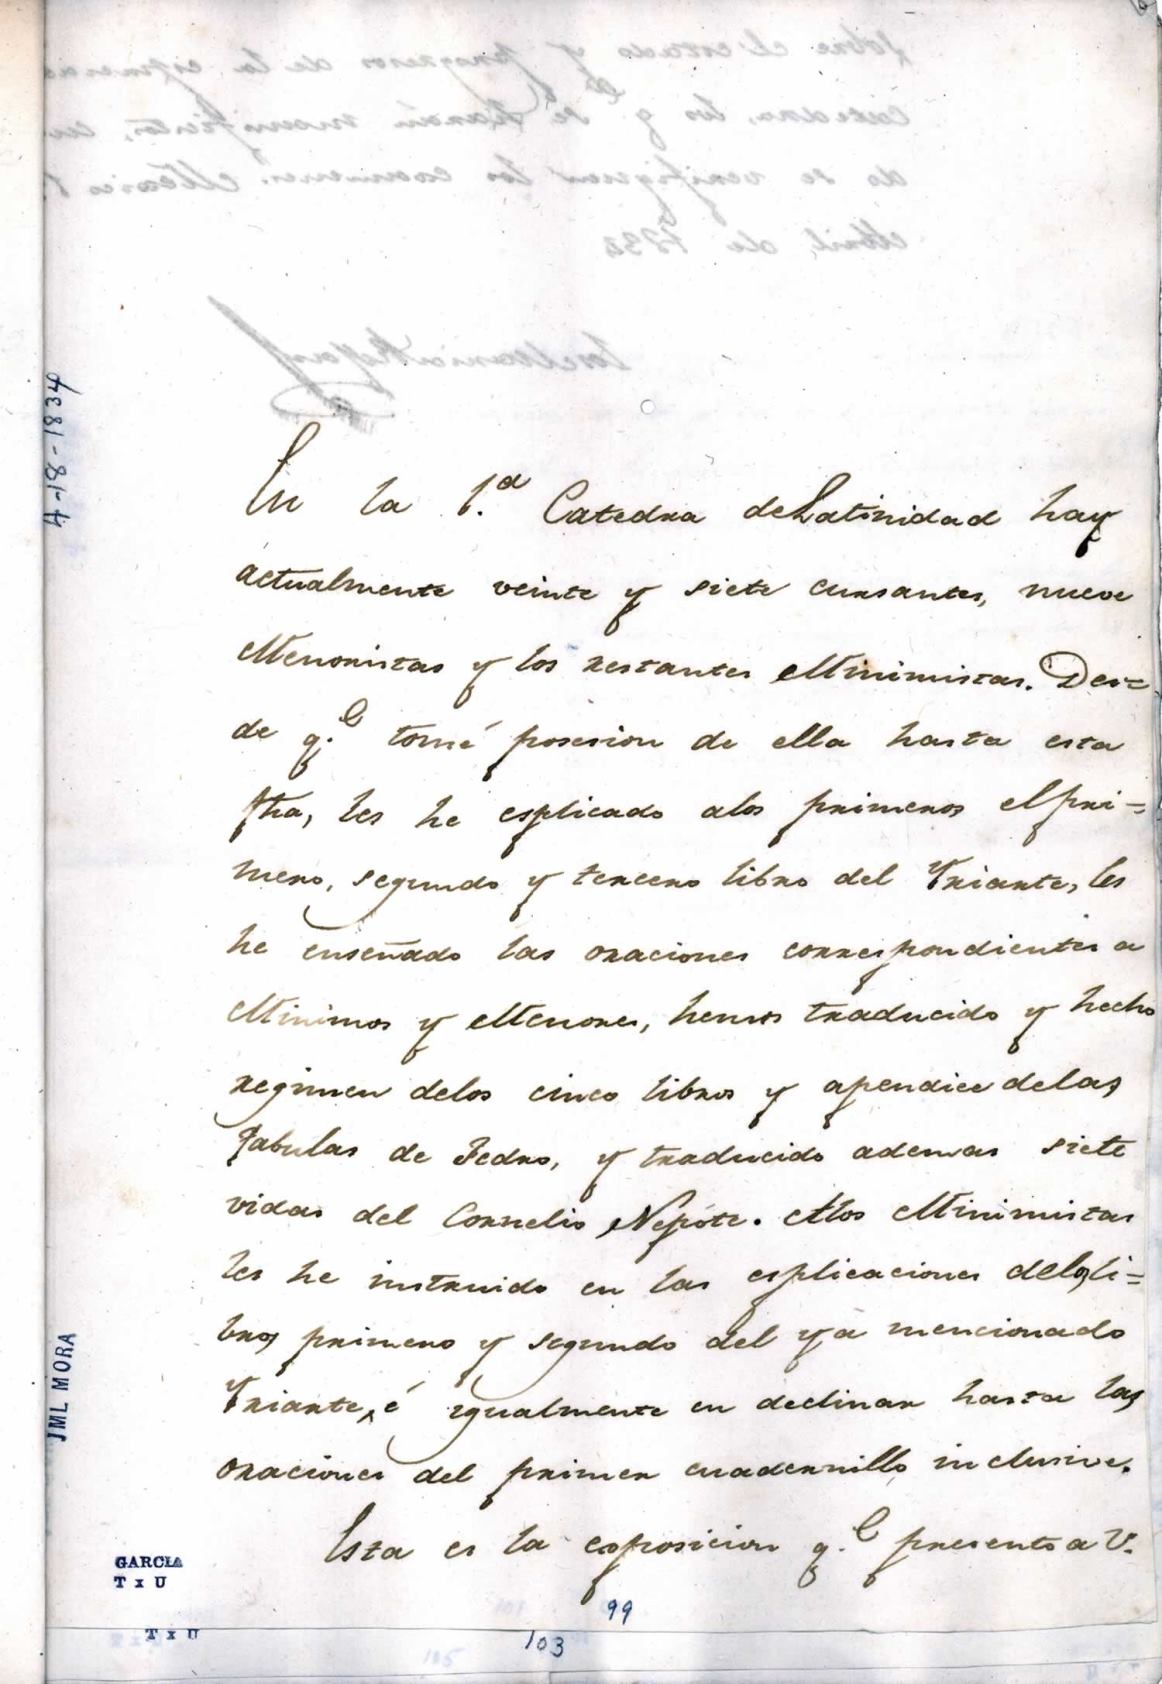 En la 1.a Catedra de Latinidad hay
actualmente veinte y siete cursantes, nueve
Menoristas y los restantes Minimistas. Des=
de q.e tomé posesion de ella hasta esta
fha, les he esplicado alos primeros el pri=
mero, segundo y tercero libro del Yriarte, les
he enseñado las oraciones correspondientes a
Minimos y Menores, hemos traducido y hecho
regimen delos cinco libros y apendice delas
fabulas de Fedro, y traducido ademas siete
vidas del Cornelio Nepóte. Alos Minimistas
les he instruido en las esplicaciones delos li=
bros primero y segundo del ya mencionado
Yriarte, é igualmente en declinar hasta las
oraciones del primer cuadernillo inclusive.
Esta es la esposicion q.e presento a V.
4-18-1834
JML MORA
GARCIA
T x U
T x U
99
103
105